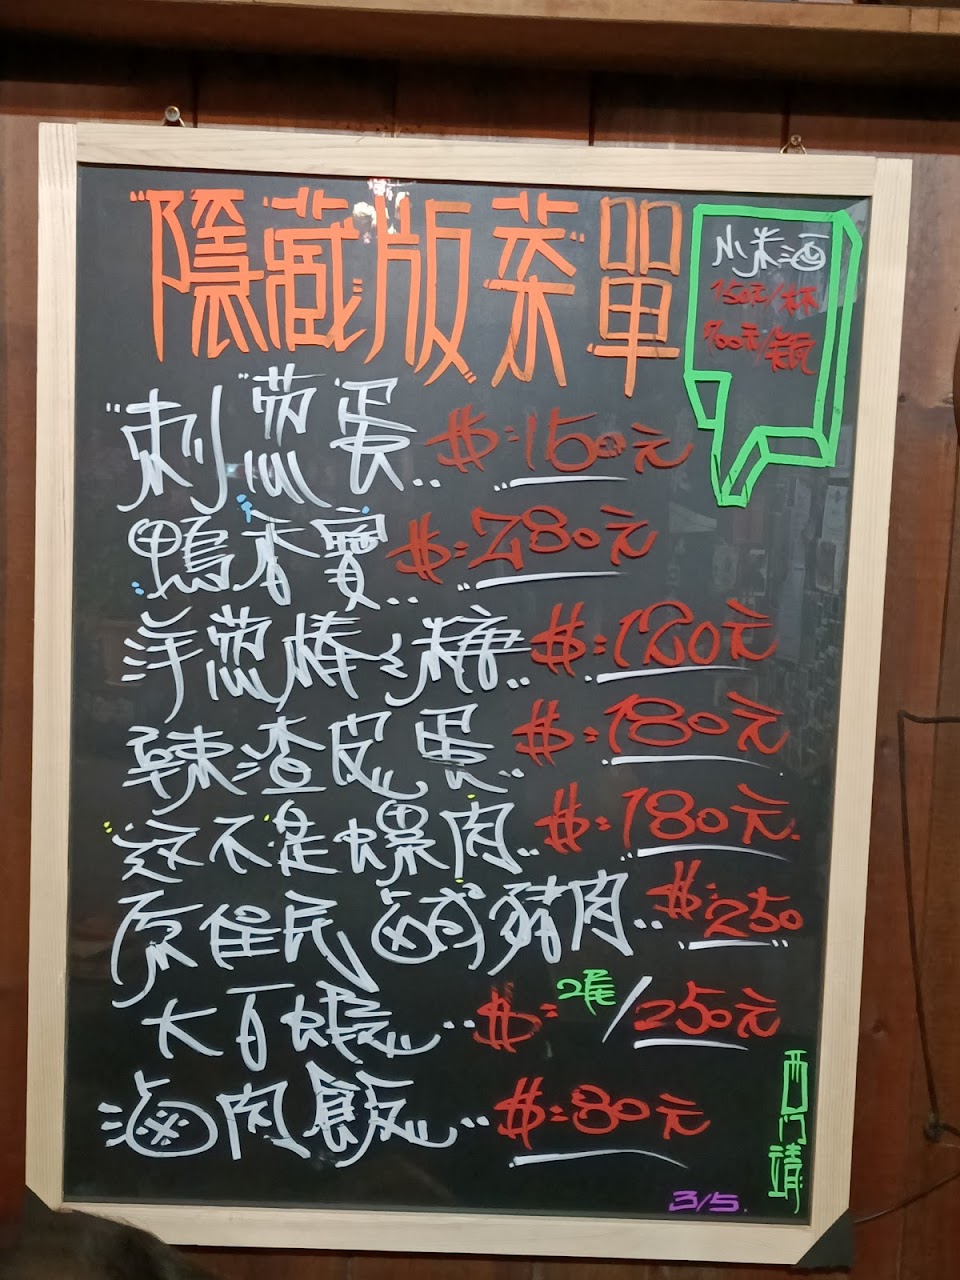 隱藏版菜單
小米酒
150元/杯
700元/瓶
刺蔥蛋..$:150元
鴨香寶..$:280元
洋蔥棒ㄑ糖..$:120元
辣渣皮蛋..$:180元
這不是螺肉..$:180元
原住民鹹豬肉..$:250
大百蝦..$:2尾/250元
滷肉飯..$:80元
西門靖
3/5.